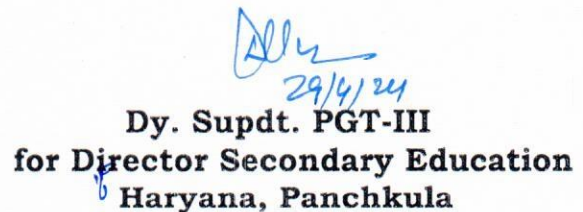 29/4/24
Dy. Supdt. PGT-III
for Director Secondary Education
Haryana, Panchkula